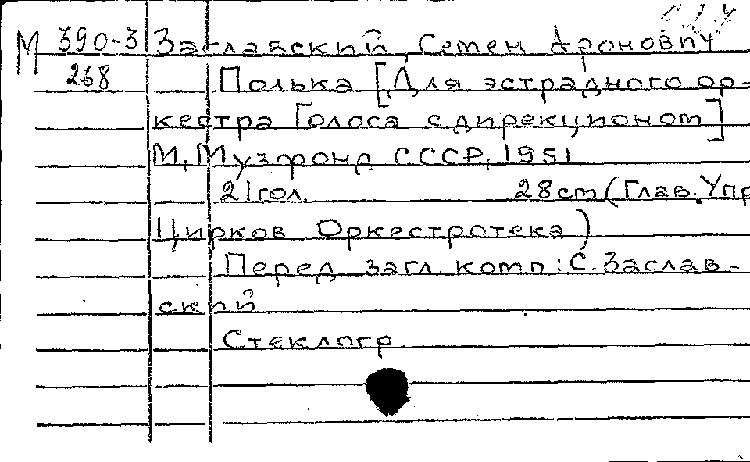 М 390-3 Заславский, Семен Аронович
268 Полька [Для эстрадного ор-
кестра Голоса с дирекционом]
М, Музфонд СССР, 1951
21 гол. 28 cm (Глав. Упр
Цирков Оркестротека)
Перед загл комп: С. Заслав-
ский
Стеклогр.